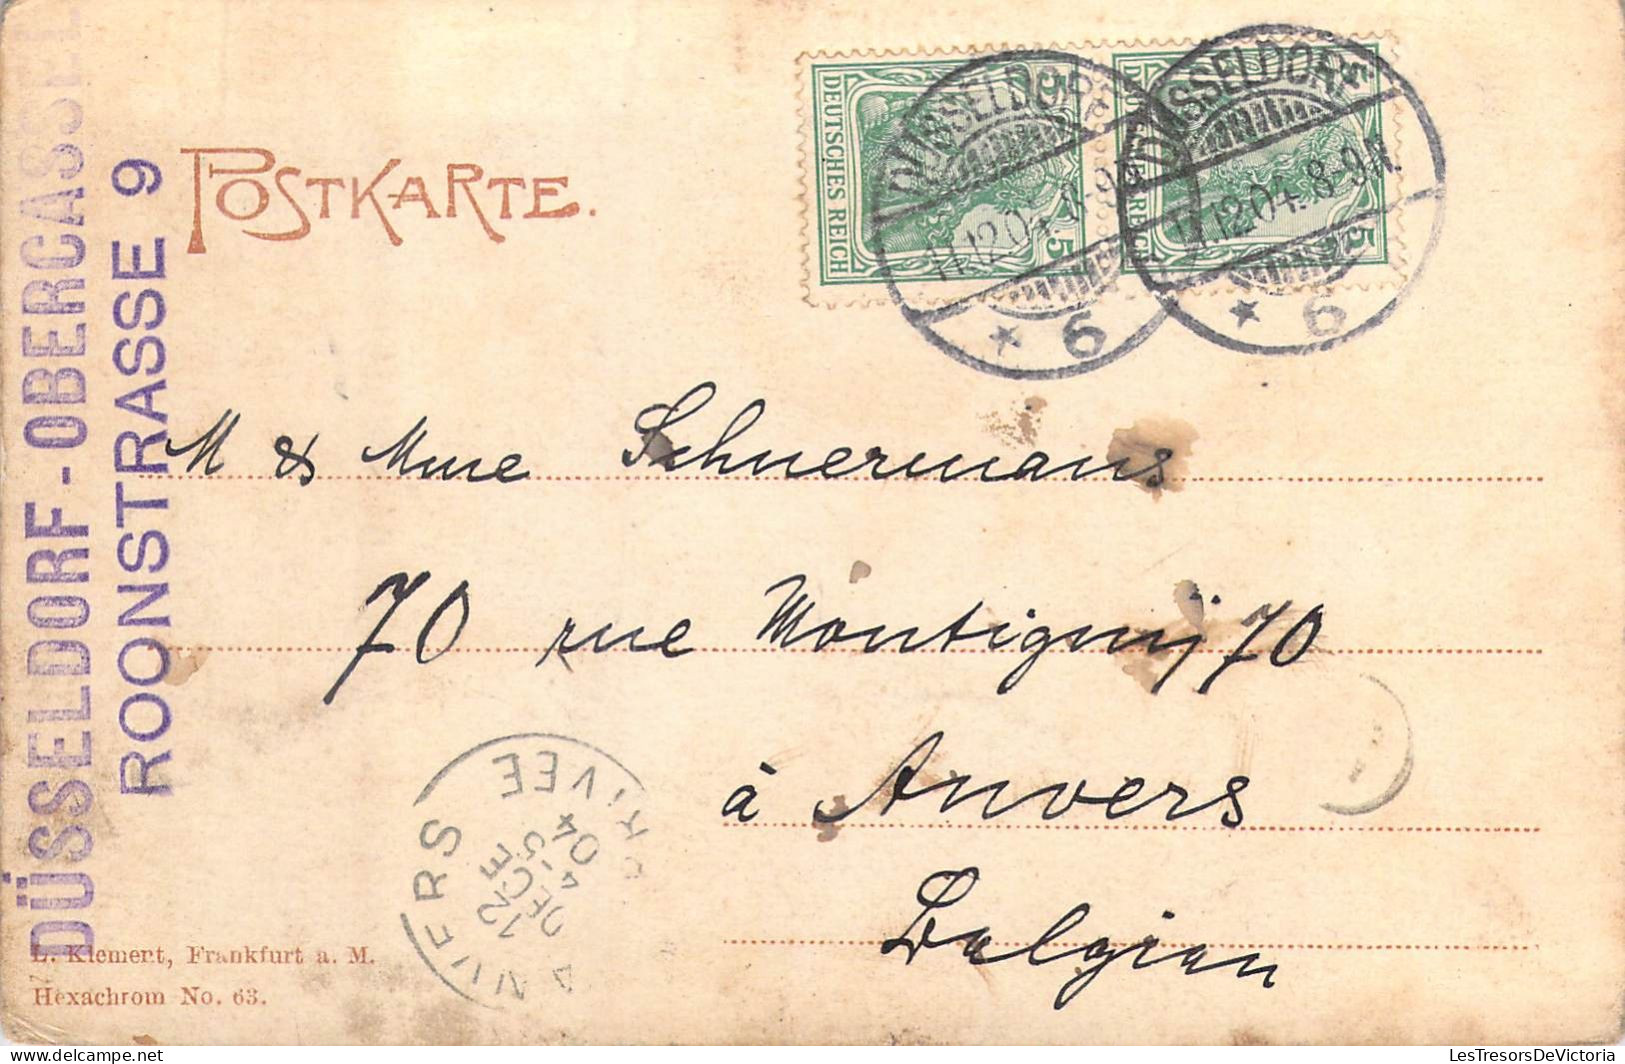 DÜSSELDORF-OBERCASSEL
ROONSTRASSE 9
POSTKARTE.
DEUTSCHES REICH
5
5
DÜSSELDORF
11.12.04. 8-9N.
* 6
5
REICH
5
DÜSSELDORF
11.12.04. 8-9N.
* 6
M & Mme Schuermans
70 rue Montigny 70
à Anvers
Belgien
ANVERS
ARRIVEE
12
DECE
04
L. Klement, Frankfurt a. M.
Hexachrom No. 63.
LesTresorsDeVictoria